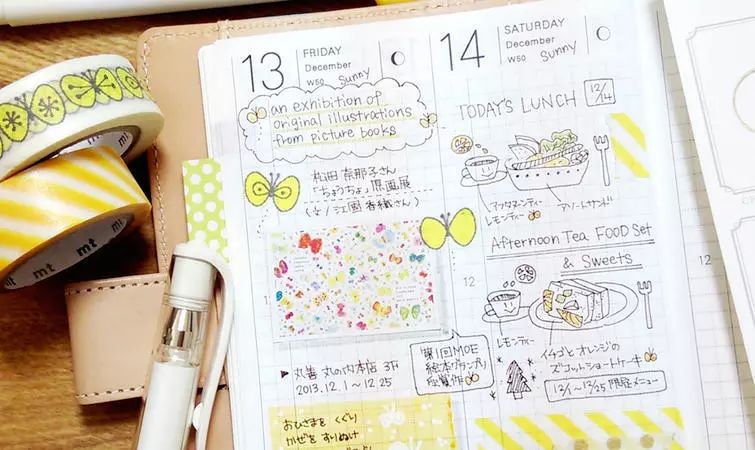 13 FRIDAY
December
W50 Sunny
an exhibition of
original illustrations
from picture books
松田奈那子さん
「ちょうちょ」原画展
(文/江國香織さん)
▶ 丸善 丸の内本店 3F
2013.12.1〜12.25
第1回MOE
絵本グランプリ
受賞作
おひさまを くぐり
かぜを すりぬけ
14 SATURDAY
December
W50 Sunny
TODAY'S LUNCH 12/14
アフタヌーンティー
レモンティー
アソートサンド
Afternoon Tea FOOD Set
& Sweets
レモンティー
イチゴとオレンジの
ズコットショートケーキ
12/1〜12/25 限定メニュー
12
12
mt
mt